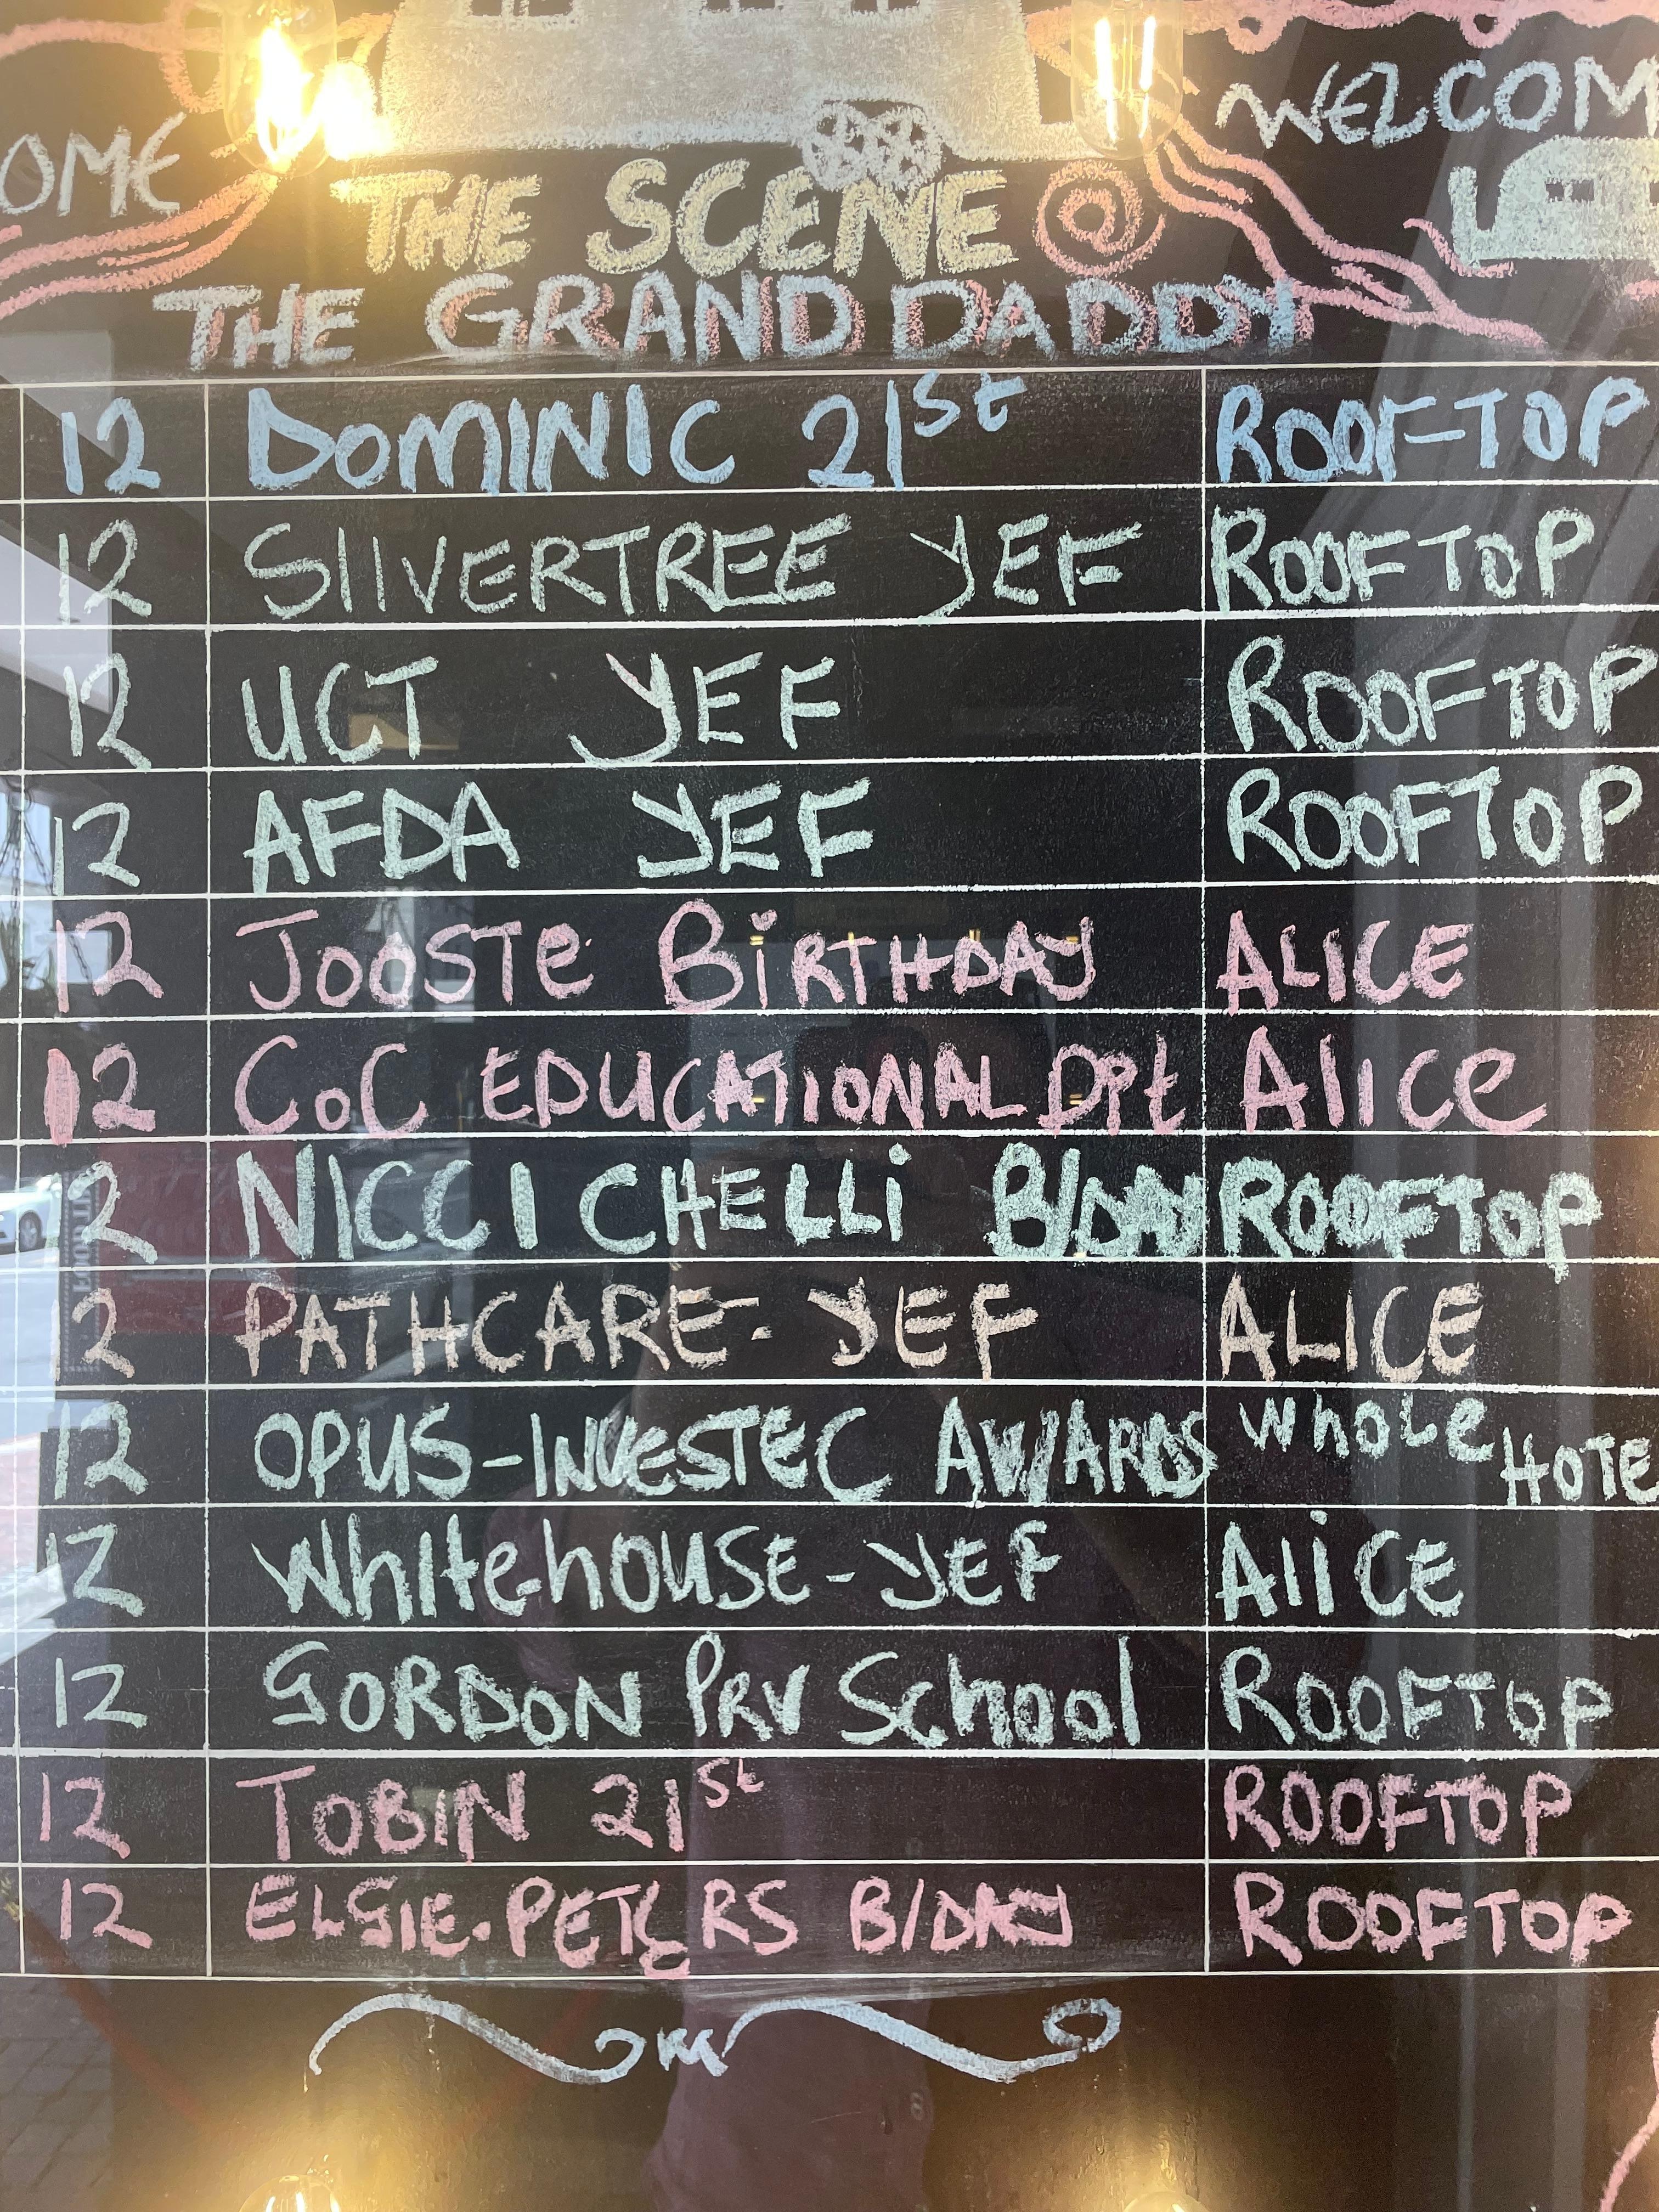 OME
WELCOM
THE SCENE @
THE GRAND DADDY
12 DOMINIC 21st ROOFTOP
12 SIlVERTREE YEF ROOFTOP
12 UCT YEF ROOFTOP
12 AFDA YEF ROOFTOP
12 JOOSTe BiRTHDAY ALICE
12 CoC EDUCATIONAL Dpt Alice
12 NICCI CHELLi B/DAY ROOFTOP
12 PATHCARE- YEF ALICE
12 OPUS-INVESTEC AWARDS WhoLe HOTE
12 WhitehOUSE-YEF AliCE
12 GORDON PRV School ROOFTOP
12 TOBIN 21st ROOFTOP
12 ELSIE.PETERS B/DAY ROOFTOP